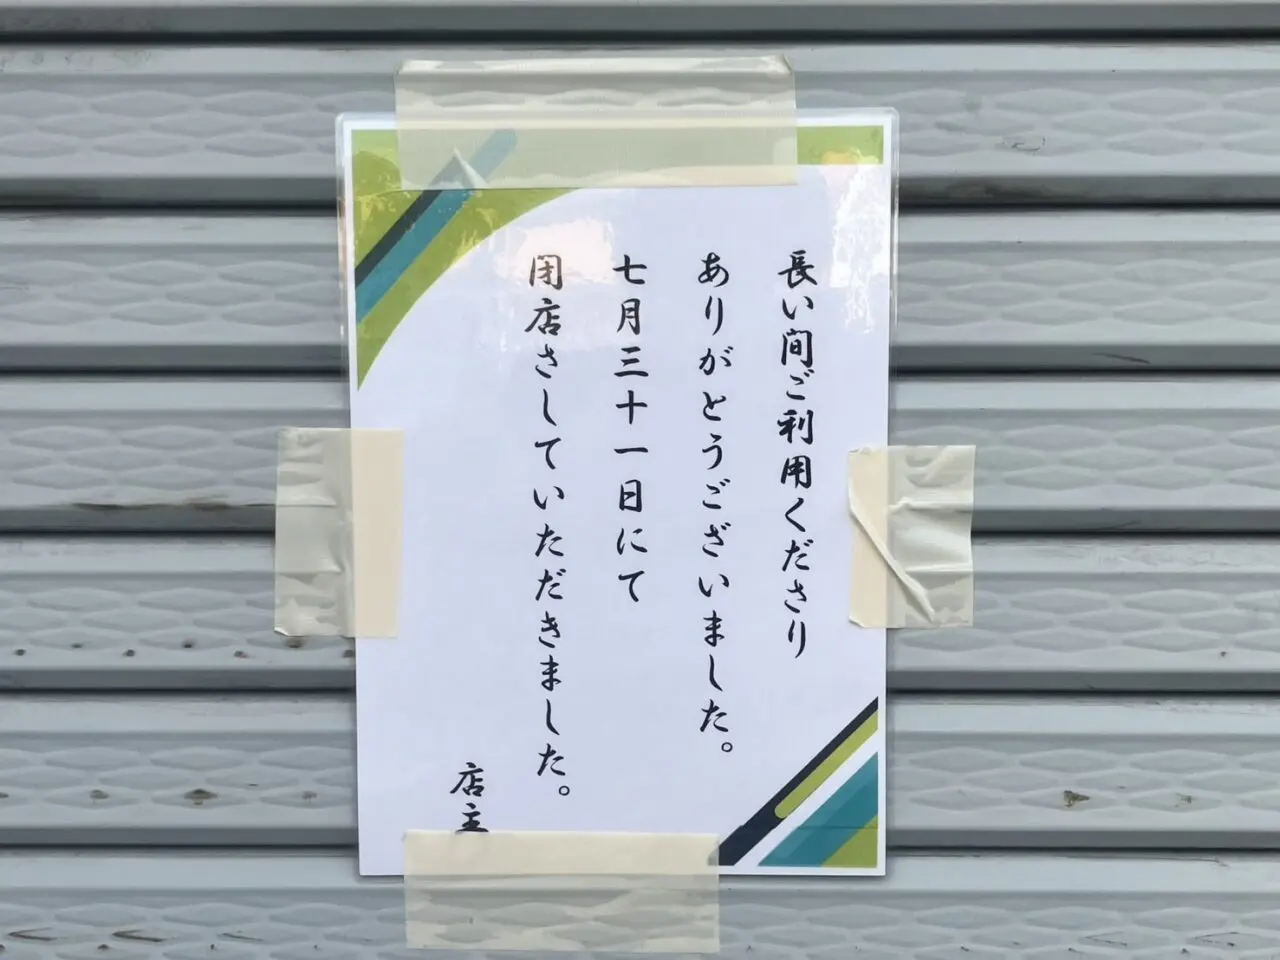 長い間ご利用くださり
ありがとうございました。
七月三十一日にて
閉店さしていただきました。
店主